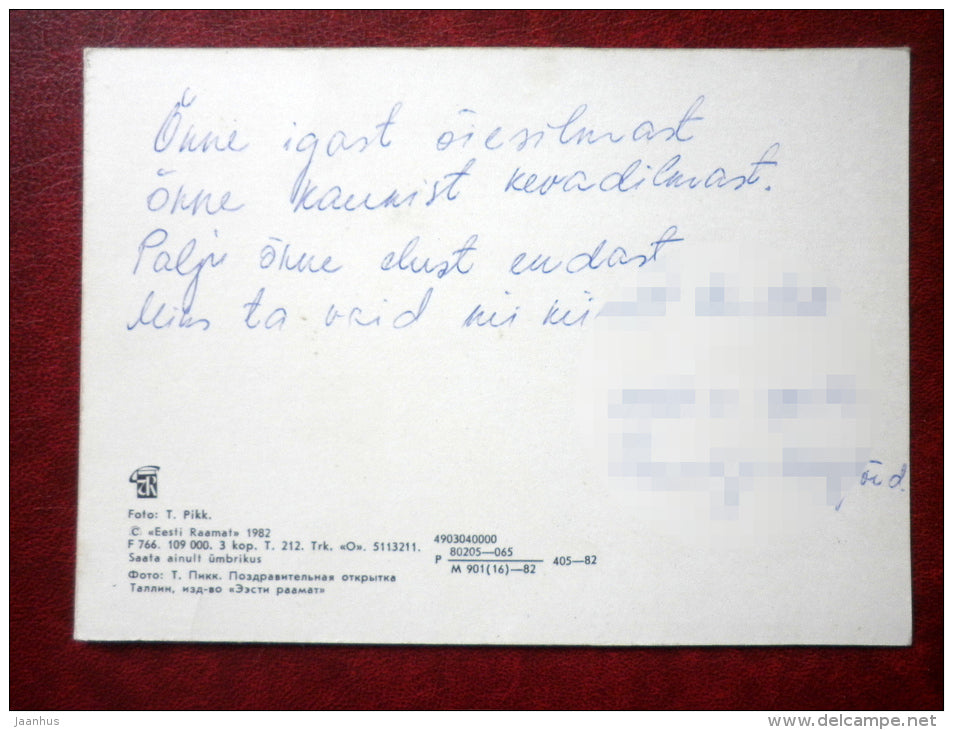 Õnne igast õiesilmast
õnne kaunist kevadilmast.
Palju õnne elust endast
Miks ta vaid nii
õed.
Foto: T. Pikk.
© «Eesti Raamat» 1982
F 766. 109 000. 3 kop. T. 212. Trk. «O». 5113211.
Saata ainult ümbrikus
Фото: Т. Пикк. Поздравительная открытка
Таллин, изд-во «Ээсти раамат»
4903040000
Р 80205—065
М 901(16)—82
405—82
Jaanhus
www.delcampe.net